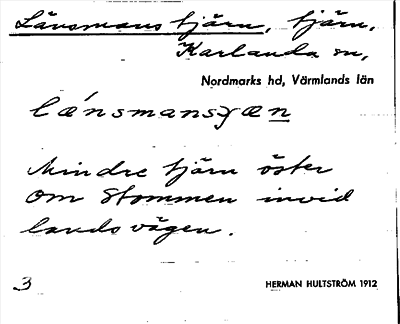 Länsmans tjärn, tjärn,
Karlanda sn,
Nordmarks hd, Värmlands län
læ´nsmansɟæn
Mindre tjärn öster
om Stommen invid
landsvägen.
3
HERMAN HULTSTRÖM 1912